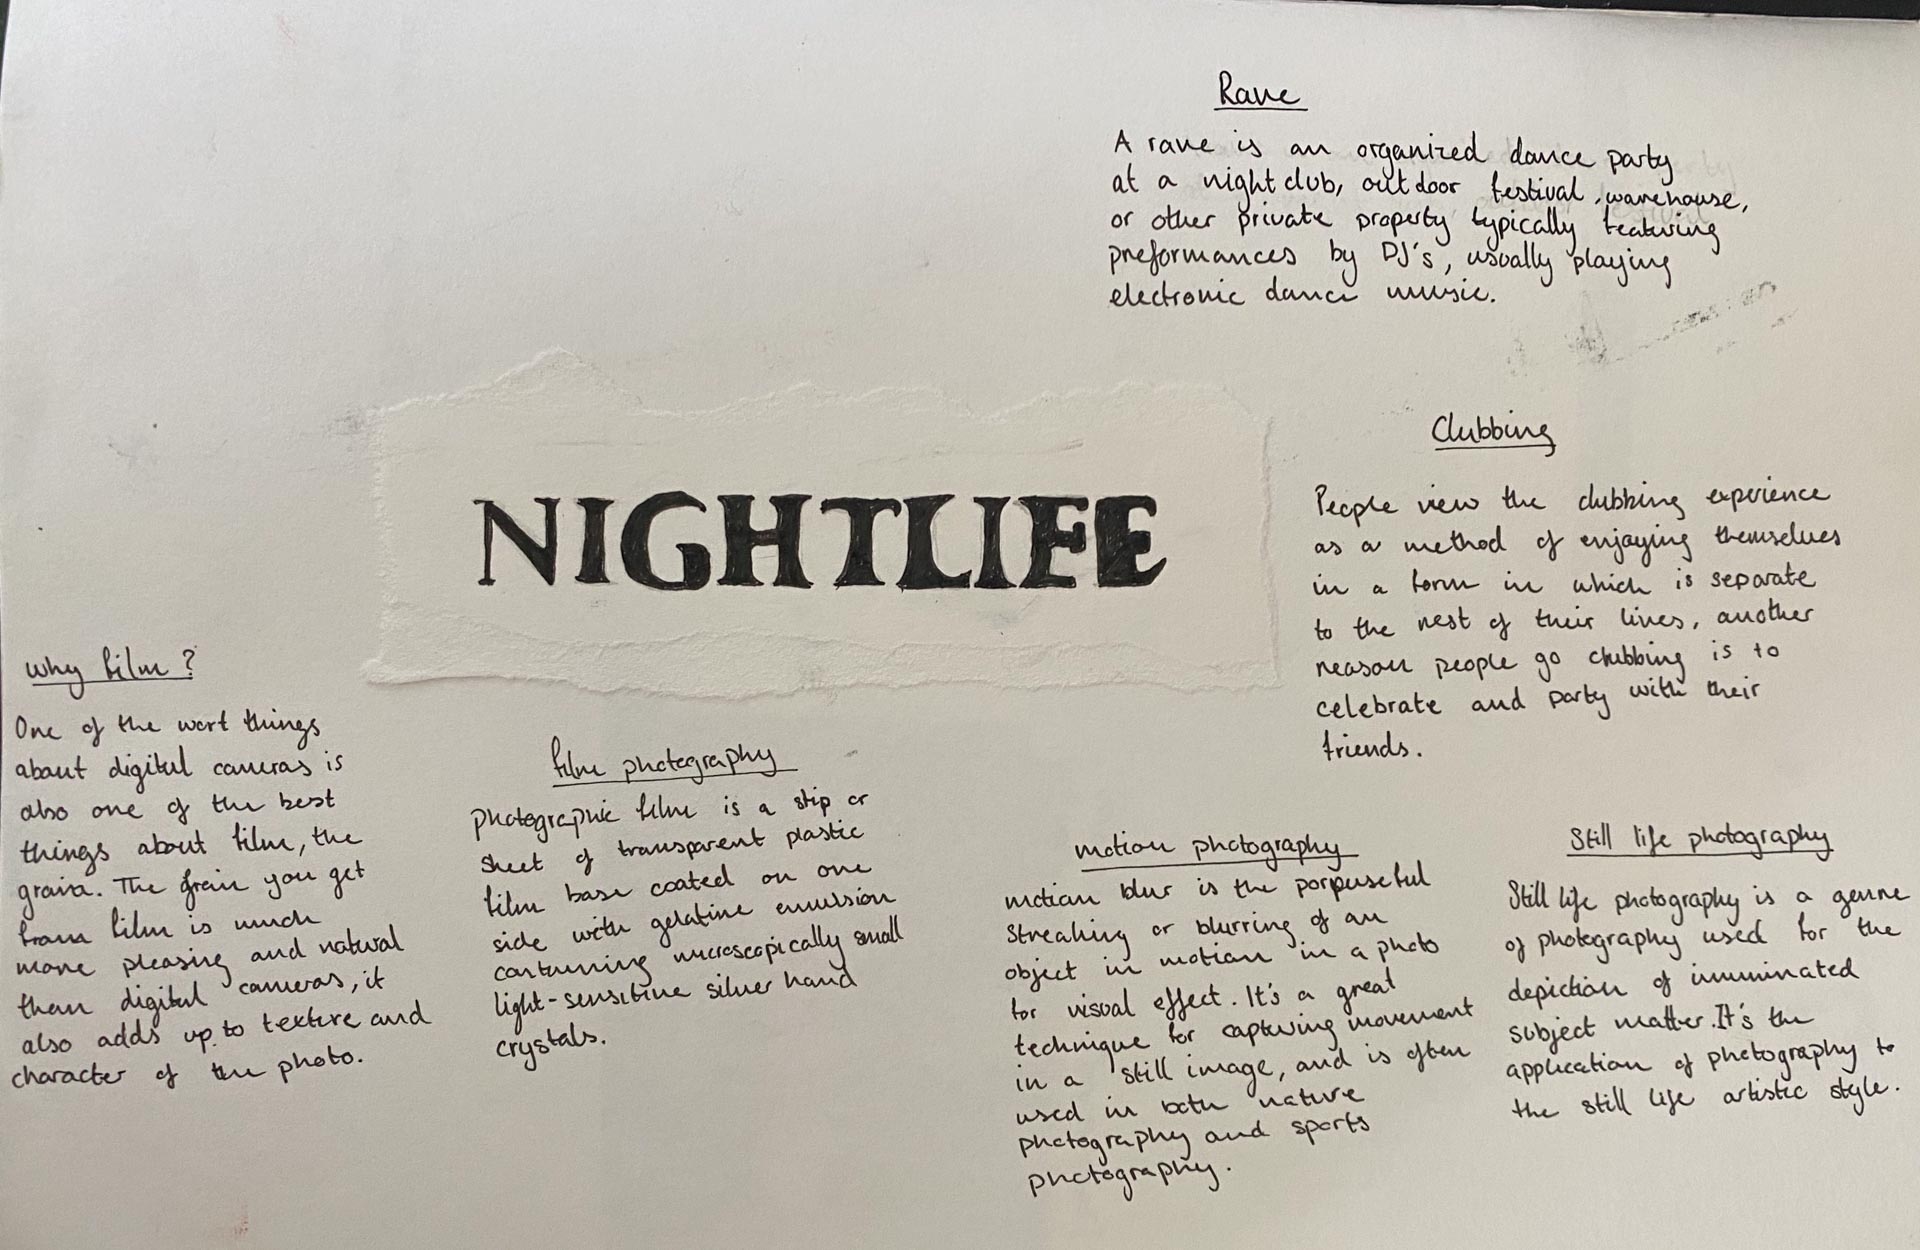 Rave
A rave is an organized dance party
at a nightclub, outdoor festival, warehouse,
or other private property typically featuring
preformances by DJ's, usually playing
electronic dance music.
NIGHTLIFE
Clubbing
People view the clubbing experience
as a method of enjoying themselves
in a form in which is separate
to the rest of their lives, another
reason people go clubbing is to
celebrate and party with their
friends.
why film?
One of the wort things
about digital cameras is
also one of the best
things about film, the
grain. The grain you get
from film is much
more pleasing and natural
than digital cameras, it
also adds up to texture and
character of the photo.
film photography
photographic film is a stip or
sheet of transparent plastic
film base coated on one
side with gelatine emulsion
containing microscopically small
light-sensitive silver hand
crystals.
motion photography
motion blur is the porpuseful
streaking or blurring of an
object in motion in a photo
for visual effect. It's a great
technique for capturing movement
in a still image, and is often
used in both nature
photography and sports
photography.
Still life photography
Still life photography is a genre
of photography used for the
depiction of inuminated
subject matter. It's the
application of photography to
the still life artistic style.